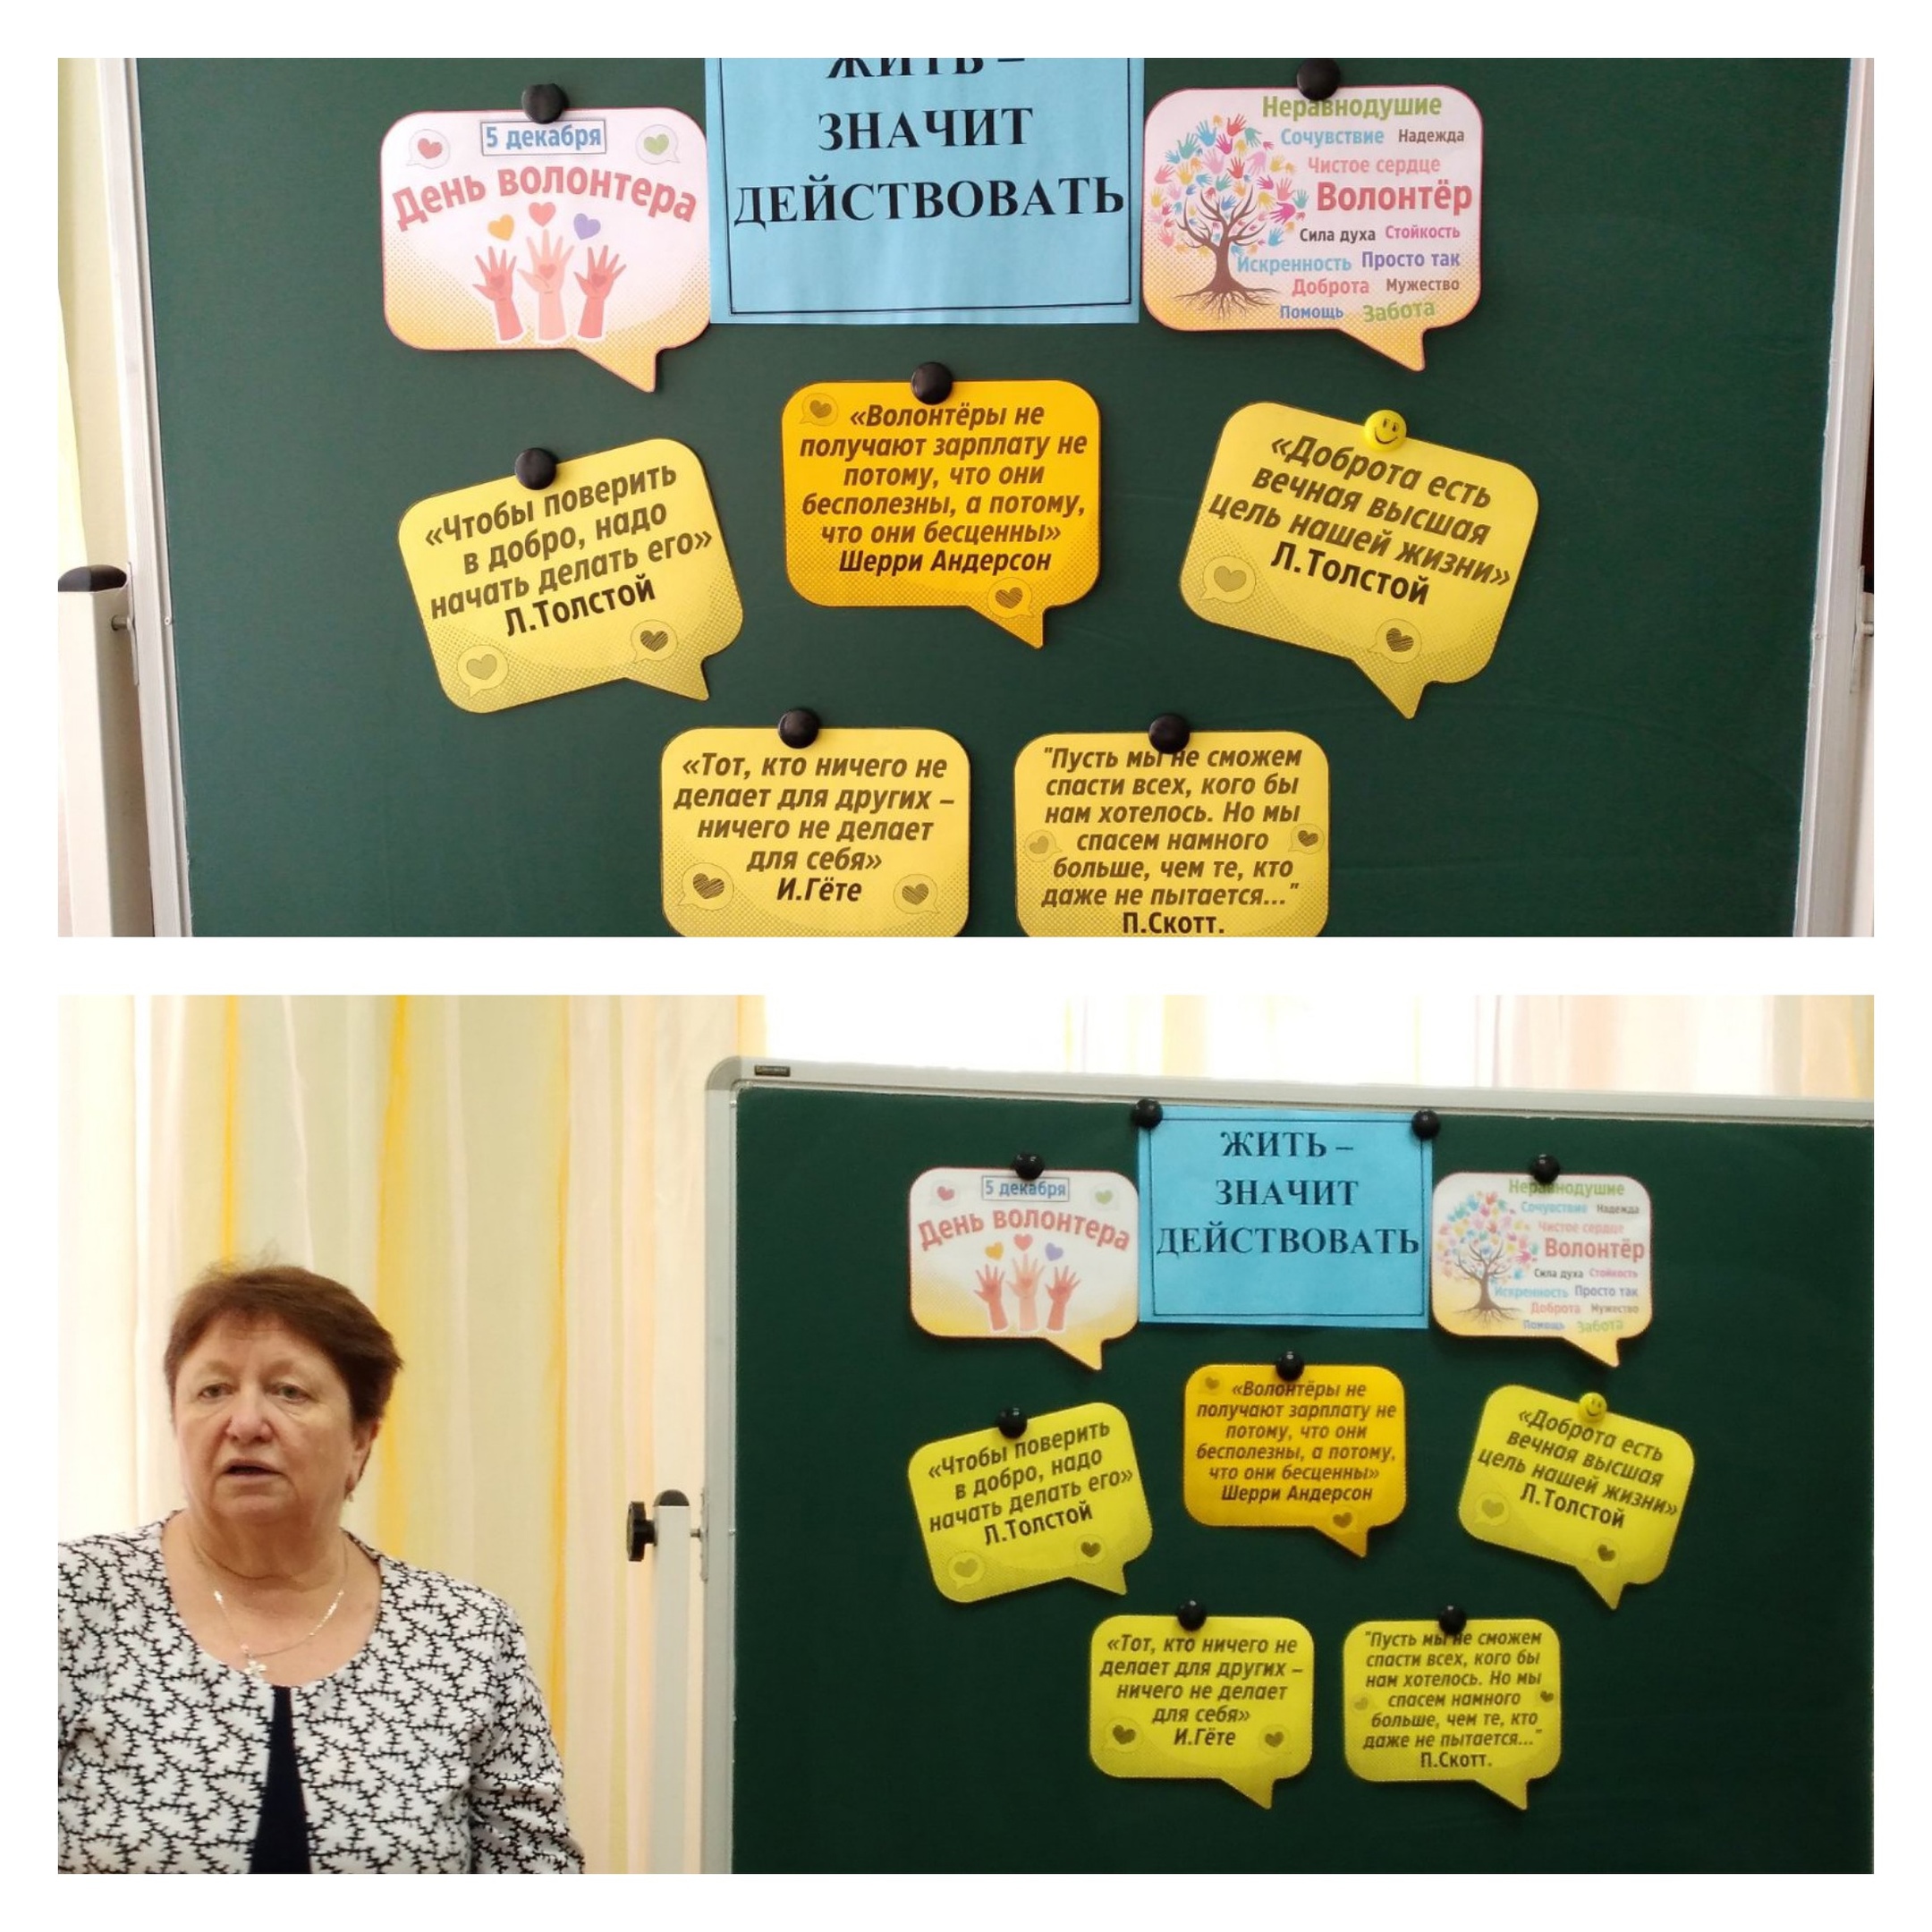 ЖИТЬ –
ЗНАЧИТ
ДЕЙСТВОВАТЬ
5 декабря
День волонтера
Неравнодушие
Сочувствие Надежда
Чистое сердце
Волонтёр
Сила духа Стойкость
Искренность Просто так
Доброта Мужество
Помощь Забота
«Чтобы поверить
в добро, надо
начать делать его»
Л.Толстой
«Волонтёры не
получают зарплату не
потому, что они
бесполезны, а потому,
что они бесценны»
Шерри Андерсон
«Доброта есть
вечная высшая
цель нашей жизни»
Л.Толстой
«Тот, кто ничего не
делает для других –
ничего не делает
для себя»
И.Гёте
"Пусть мы не сможем
спасти всех, кого бы
нам хотелось. Но мы
спасем намного
больше, чем те, кто
даже не пытается..."
П.Скотт.
5 декабря
День волонтера
ЖИТЬ –
ЗНАЧИТ
ДЕЙСТВОВАТЬ
Неравнодушие
Сочувствие Надежда
Чистое сердце
Волонтёр
Сила духа Стойкость
Искренность Просто так
Доброта Мужество
Помощь Забота
«Чтобы поверить
в добро, надо
начать делать его»
Л.Толстой
«Волонтёры не
получают зарплату не
потому, что они
бесполезны, а потому,
что они бесценны»
Шерри Андерсон
«Доброта есть
вечная высшая
цель нашей жизни»
Л.Толстой
«Тот, кто ничего не
делает для других –
ничего не делает
для себя»
И.Гёте
"Пусть мы не сможем
спасти всех, кого бы
нам хотелось. Но мы
спасем намного
больше, чем те, кто
даже не пытается..."
П.Скотт.